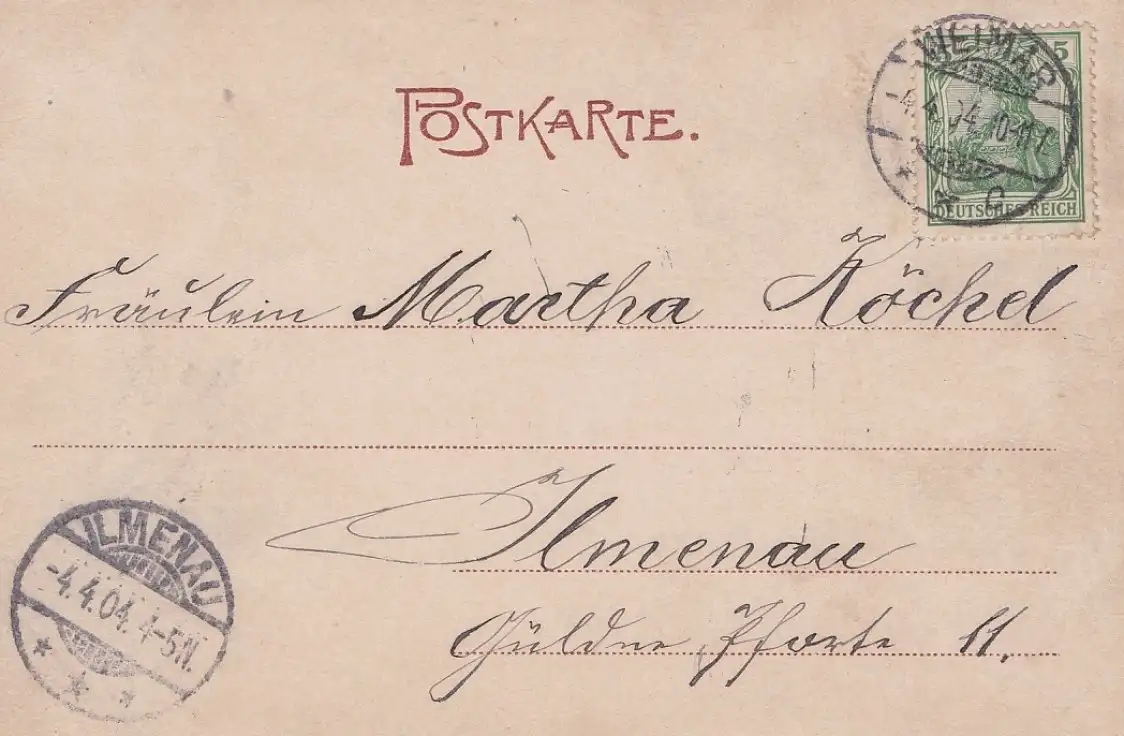 POSTKARTE.
WEIMAR
-4.4.04. 10-11
C
5
DEUTSCHES REICH
Fräulein Martha Köchel
Ilmenau
Güldne Pforte 11.
ILMENAU
-4.4.04. 4-5N.